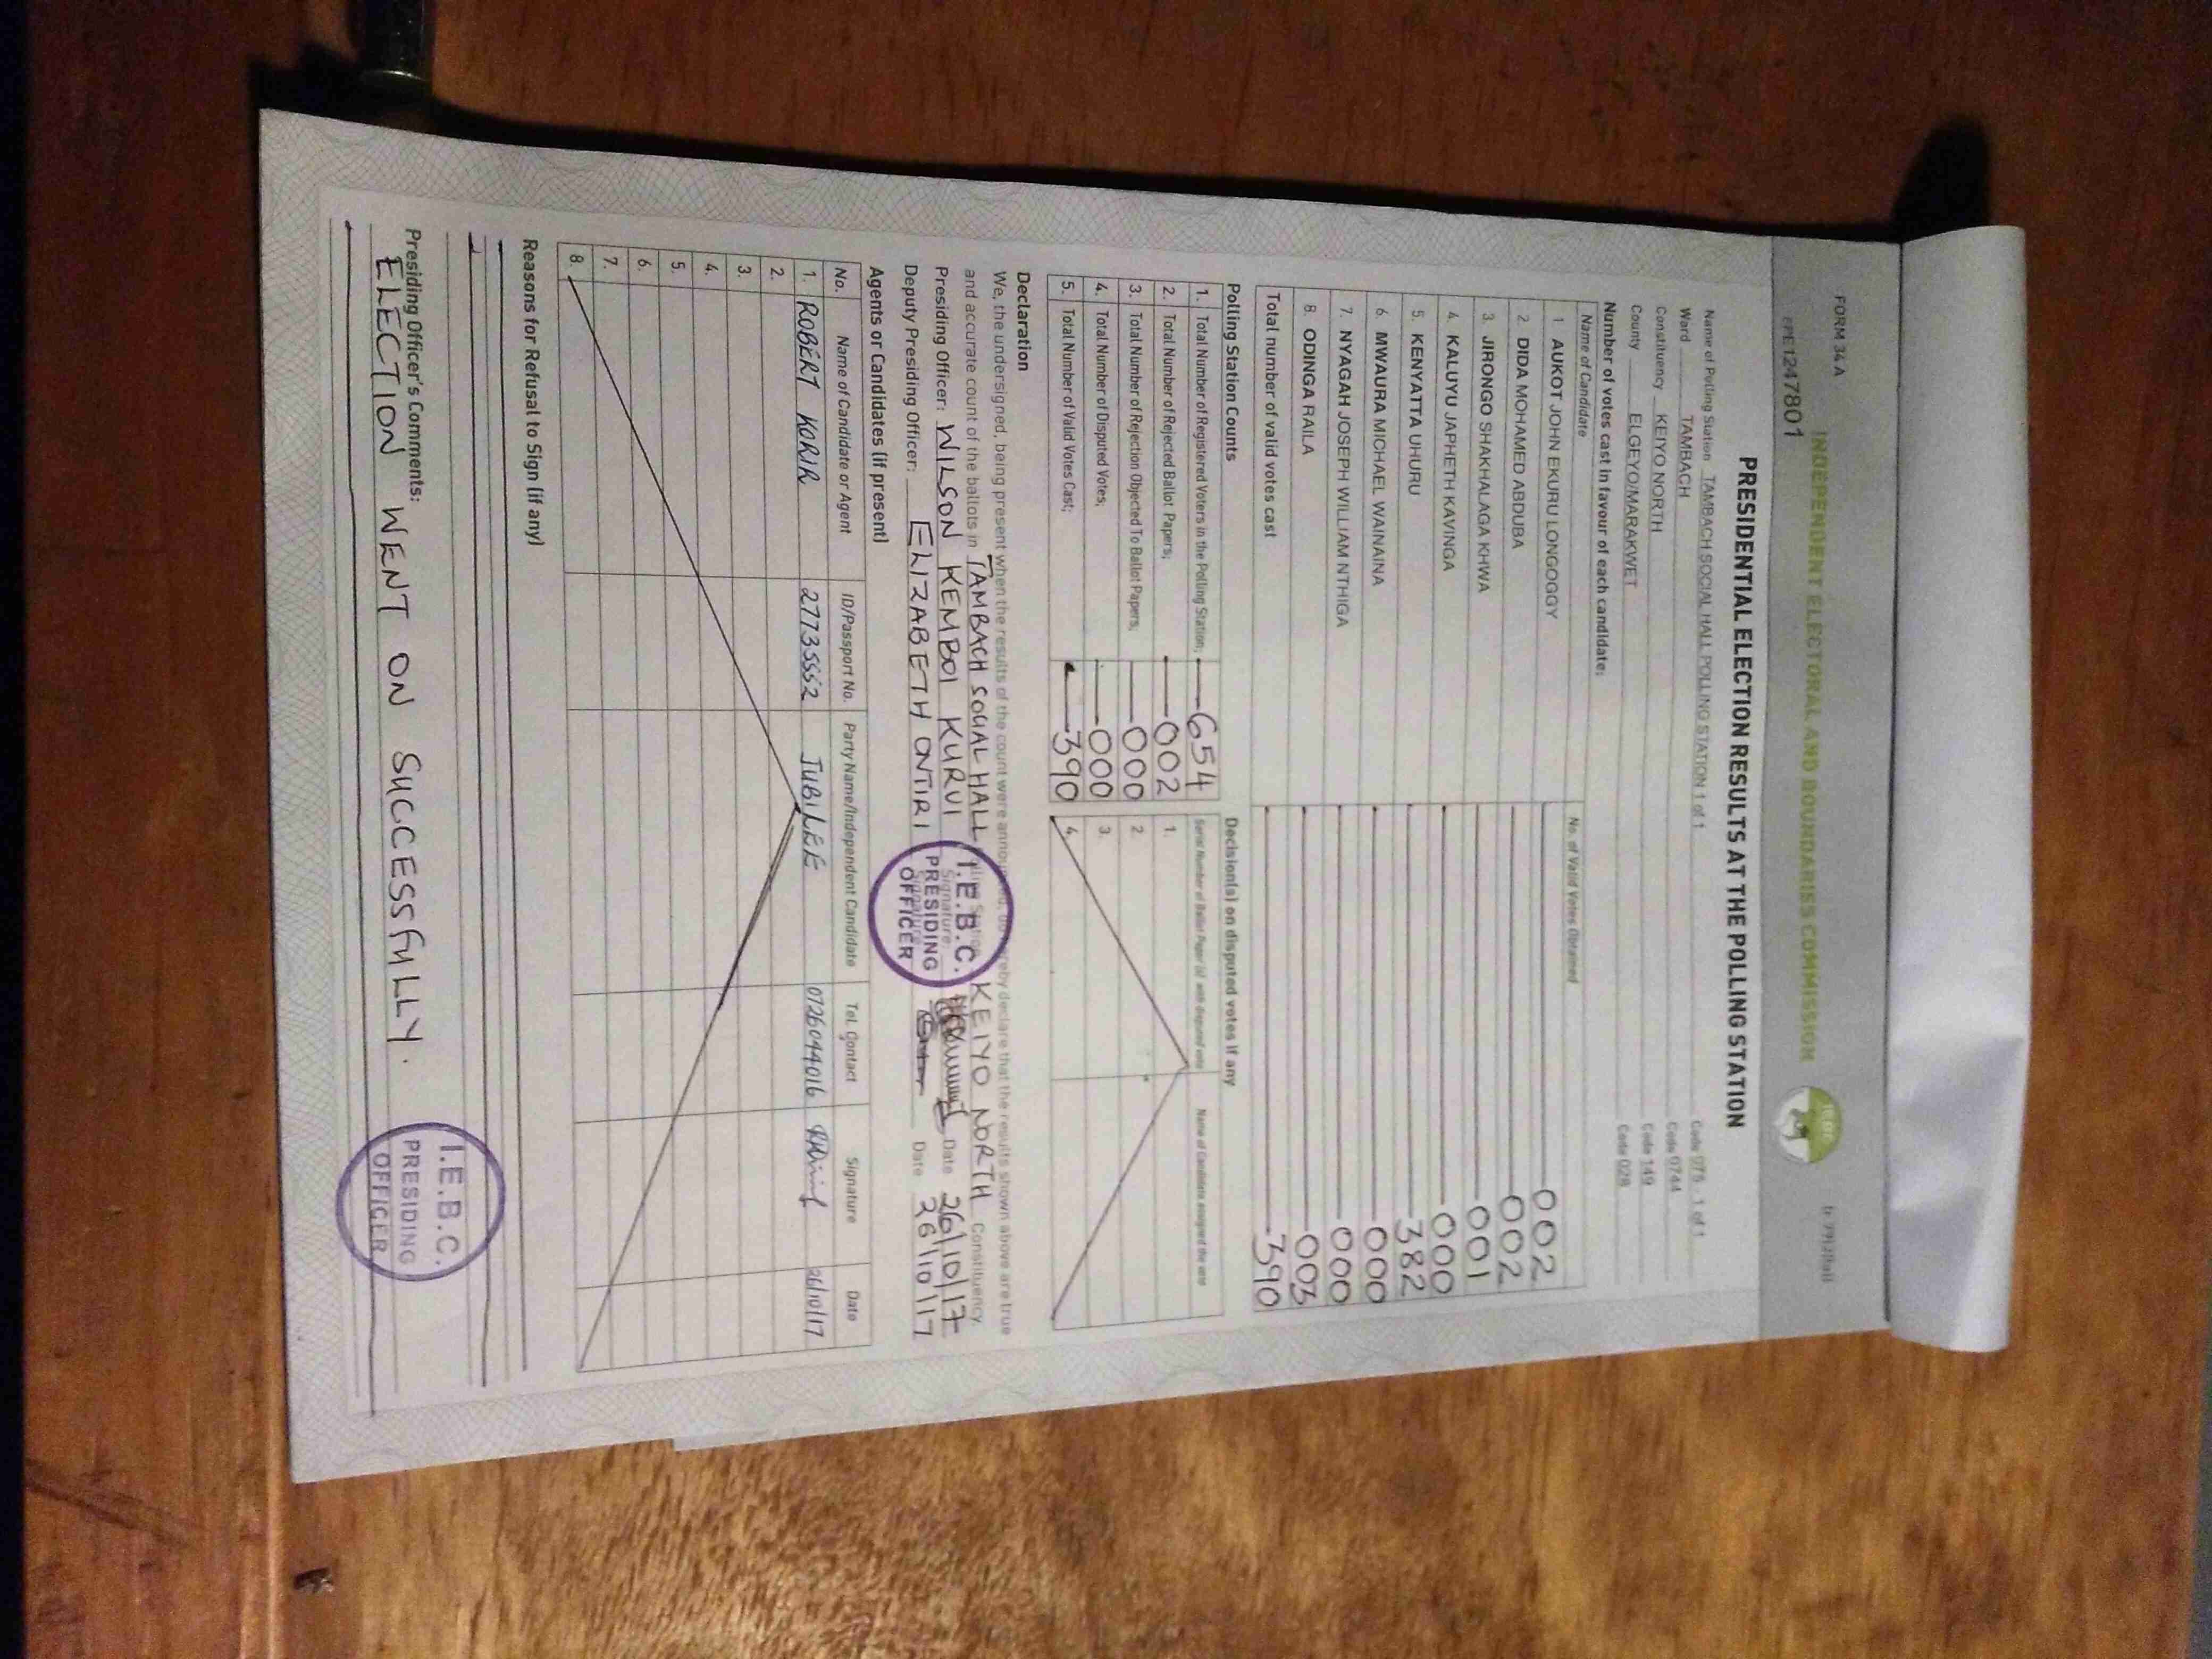 FORM 34 A
INDEPENDENT ELECTORAL AND BOUNDARIES COMMISSION
PRESIDENTIAL ELECTION RESULTS AT THE POLLING STATION
Name of Polling Station TAMBACH SOCIAL HALL POLLING STATION 1 of 1 Code 075 - 1 of 1
Ward TAMBACH Code 0744
Constituency KEIYO NORTH Code 149
County ELGEYO/MARAKWET Code 028
Number of votes cast in favour of each candidate:
Name of Candidate No. of Valid Votes Obtained
1. AUKOT JOHN EKURU LONGOGGY 002
2. DIDA MOHAMED ABDUBA 002
3. JIRONGO SHAKHALAGA KHWA 001
4. KALUYU JAPHETH KAVINGA 000
5. KENYATTA UHURU 382
6. MWAURA MICHAEL WAINAINA 000
7. NYAGAH JOSEPH WILLIAM NTHIGA 000
8. ODINGA RAILA 003
Total number of valid votes cast 390
Polling Station Counts
1. Total Number of Registered Voters in the Polling Station; 654
2. Total Number of Rejected Ballot Papers; 002
3. Total Number of Rejection Objected To Ballot Papers; 000
4. Total Number of Disputed Votes; 000
5. Total Number of Valid Votes Cast; 390
Decision(s) on disputed votes if any
Serial Number of Ballot Paper (s) with disputed vote Name of Candidate assigned the vote
1.
2.
3.
4.
Declaration
We, the undersigned, being present when the results of the count were announced, do hereby declare that the results shown above are true
and accurate count of the ballots in TAMBACH SOCIAL HALL Polling Station KEIYO NORTH Constituency.
Presiding Officer: WILSON KEMBOI KURUI Signature: Date 26/10/17
Deputy Presiding Officer: ELIZABETH ONTIRI Signature Date 26/10/17
I.E.B.C.
PRESIDING
OFFICER
Agents or Candidates (if present)
No. Name of Candidate or Agent ID/Passport No. Party Name/Independent Candidate Tel. Contact Signature Date
1. ROBERT KORIR 27735552 JUBILEE 0726044016 26/10/17
2.
3.
4.
5.
6.
7.
8.
Reasons for Refusal to Sign (if any)
Presiding Officer's Comments:
ELECTION WENT ON SUCCESSFULLY.
I.E.B.C.
PRESIDING
OFFICER